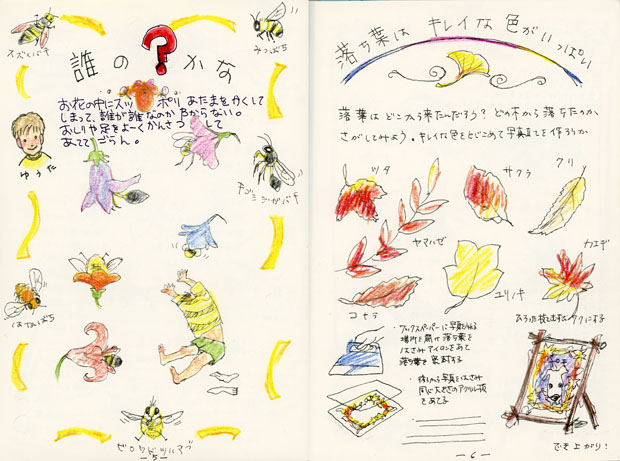 スズメバチ
みつばち
誰の?かな
お花の中にスッポリあたまをかくして
しまって、誰が誰なのかわからない。
おしりや足をよーくかんさつして
あててごらん。
ゆうた
はなばち
— 5 —
落ち葉は キレイな色がいっぱい
落葉はどこから来たんだろう?どの木から落ちたのか
さがしてみよう。キレイな色をとじこめて写真立てを作ろうか
ツタ
サクラ
クリ
ヤマハゼ
コナラ
ユリノキ
カエデ
ブックスペーパーに写真が入る
場所を開け落ち葉を
はさみアイロンをあて
落ち葉を
後ろから写真をはさみ
同じ大きさのアクリル板
をあてる
でき上がり!
— 6 —